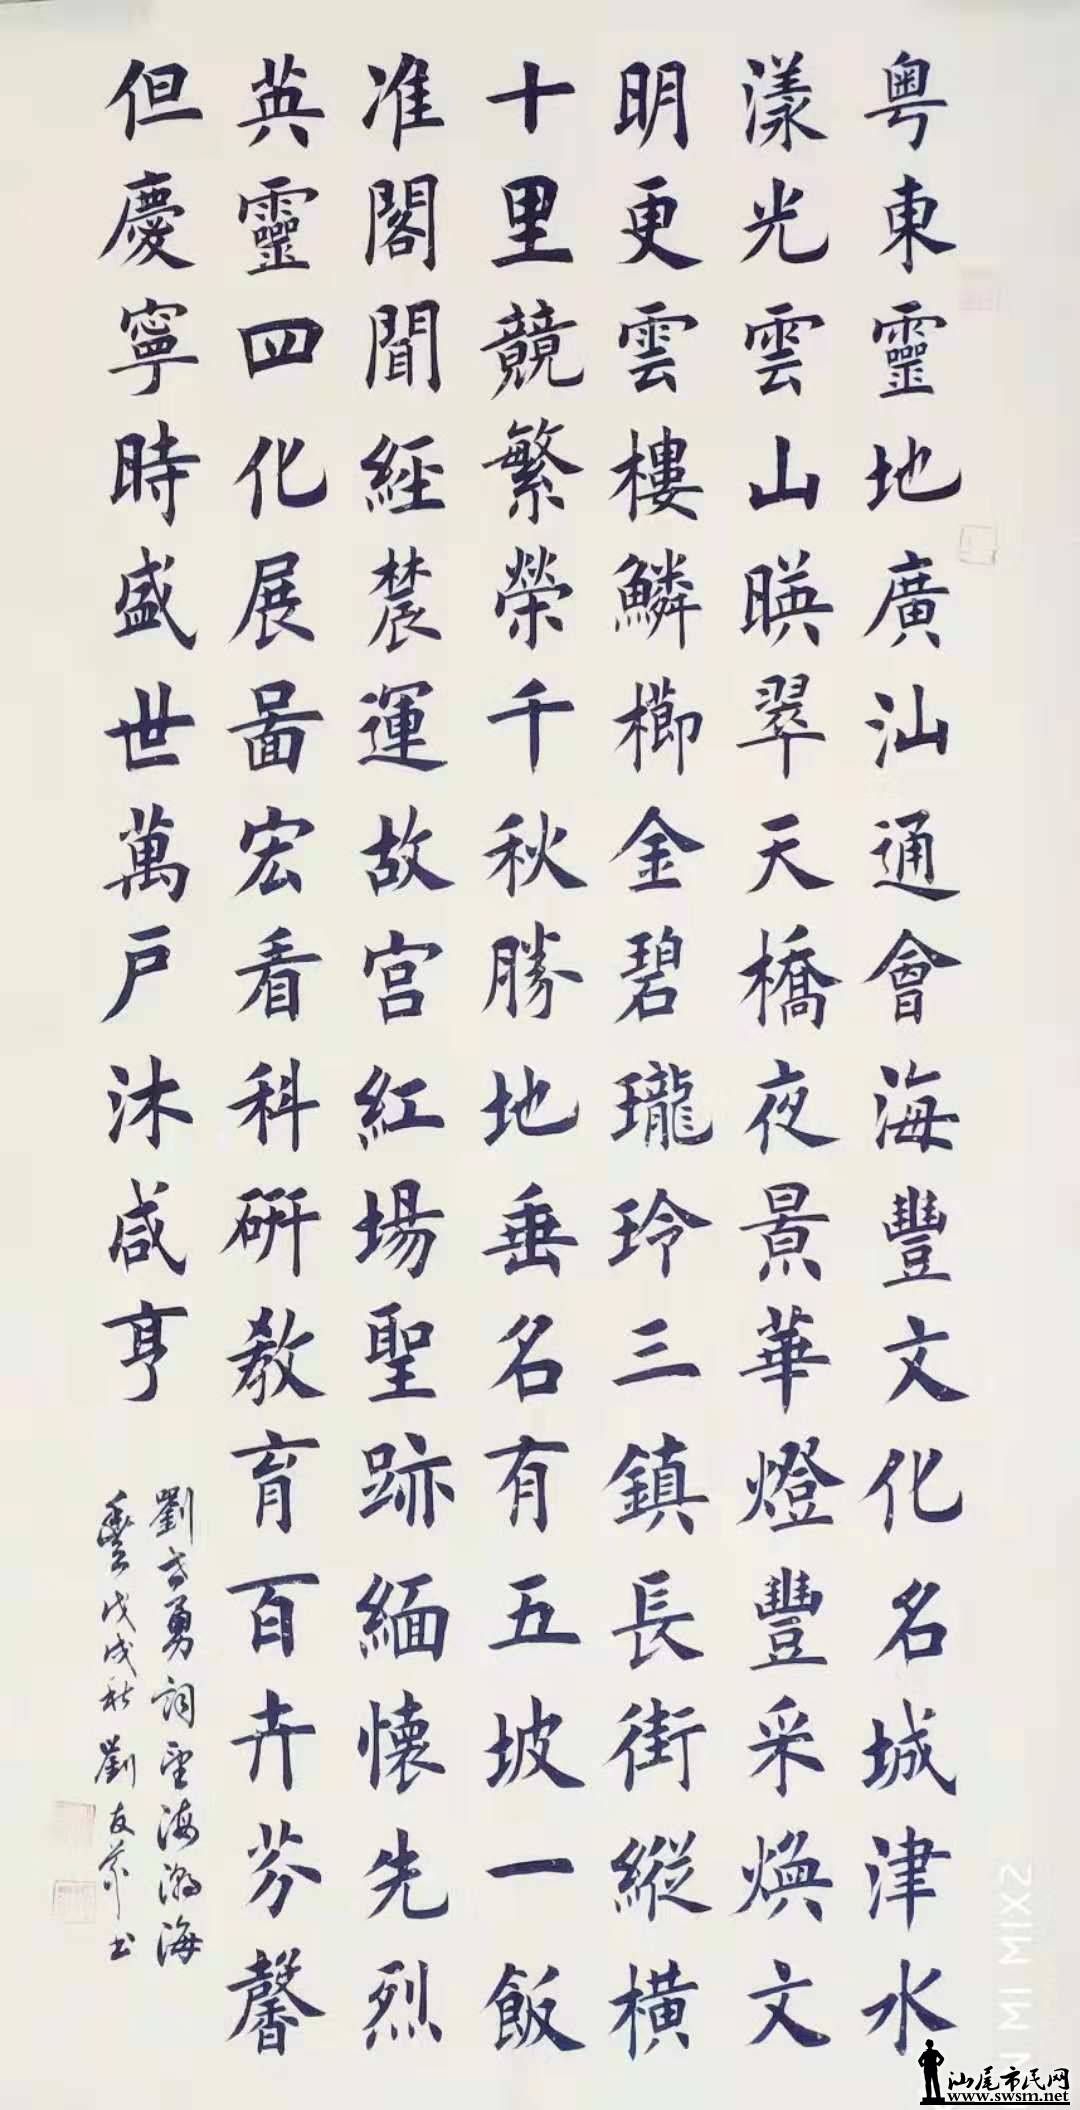 粵東靈地廣汕通會海豐文化名城津水
漾光雲山暎翠天橋夜景華燈豐采煥文
明更雲樓鱗櫛金碧瓏玲三鎮長街縱橫
十里競繁榮千秋勝地垂名有五坡一飯
准閣聞經農運故宮紅場聖跡緬懷先烈
英靈四化展啚宏看科研教育百卉芬馨
但慶寧時盛世萬戶沐咸亨
劉方勇詞望海潮海
豐戊戌秋劉友芥书
汕尾市民网
www.swsm.net
N MI MIX2